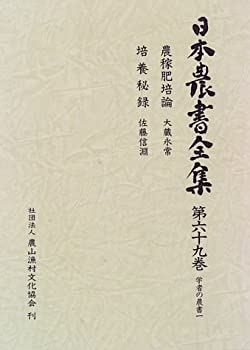 日本農書全集
第六十九巻
学者の農書一
農稼肥培論 大蔵永常
培養秘録 佐藤信淵
社団法人 農山漁村文化協会 刊